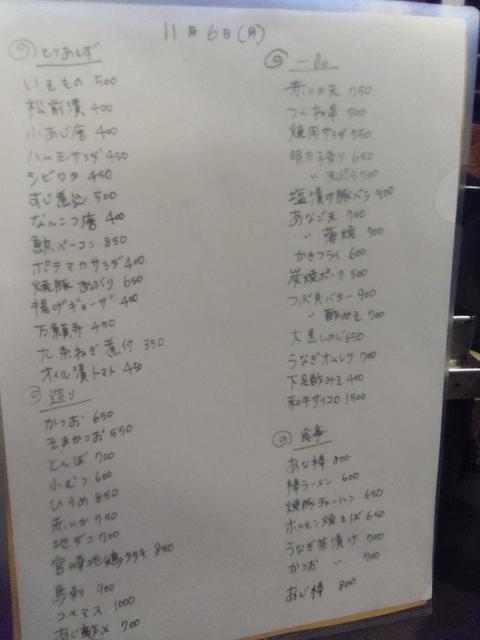 11月6日(月)
とりあえず
いそもの 500
松前漬 400
小あじ唐 400
ハム玉サラダ 450
シビワタ 450
すじ煮込 500
なんこつ唐 400
鯨ベーコン 850
ポテマカサラダ 400
焼豚あぶり 650
揚げギョーザ 400
万願寺 450
九条ねぎ煮付 350
オイル漬トマト 450
造り
かつお 650
そまかつお 550
とんぼ 700
小むつ 600
ひらめ 850
赤いか 750
地ダコ 700
宮崎地鶏タタキ 850
馬刺 900
コベマス 1000
あじ酢〆 700
一品
赤いか天 750
つくね串 500
焼肉サラダ 750
明太子炙り 650
〃 天ぷら 700
塩漬け豚バラ 900
あなご天 700
〃 蒲焼 700
かきフライ 600
炭焼ポーク 500
つぶ貝バター 900
〃 酢みそ 700
大黒しめじ 650
うなぎオムレツ 700
下足酢みそ 400
和牛サイコロ 1500
食事
あな棒 800
棒ラーメン 600
焼豚チャーハン 650
ホルモン焼そば 650
うなぎ茶漬け 700
かつお 〃 700
あじ棒 800